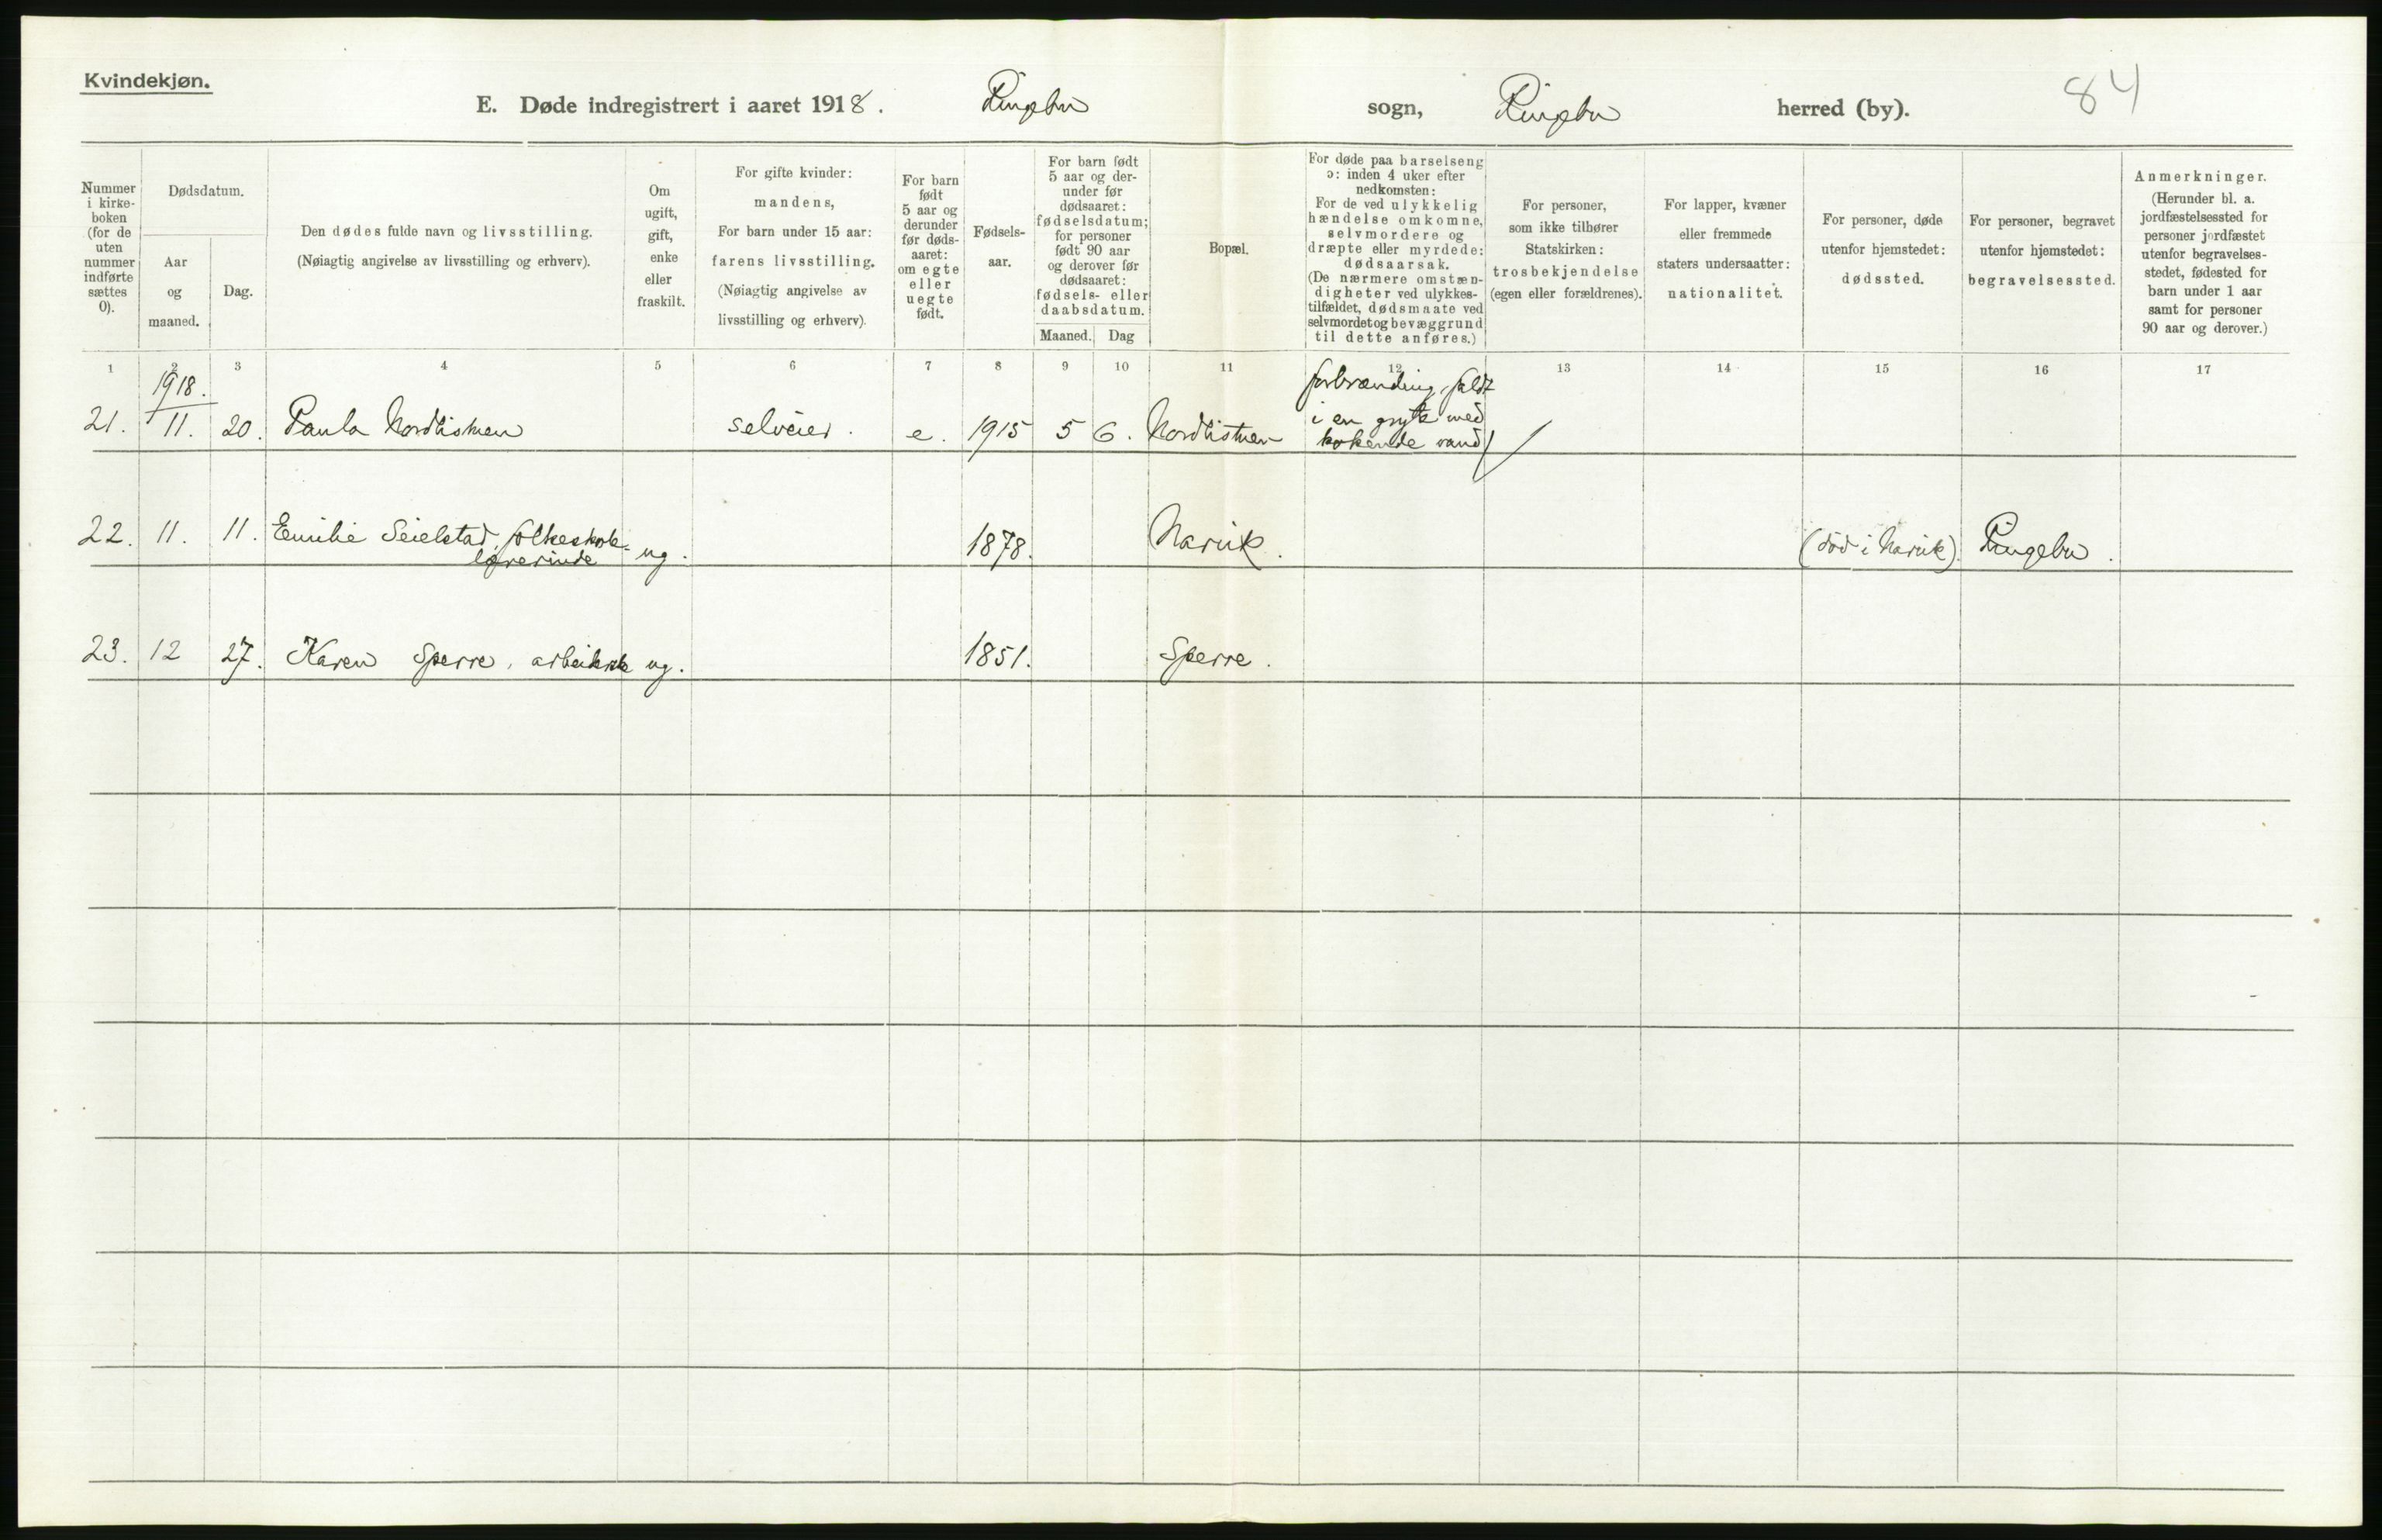 Kvindekjøn.
E. Døde indregistrert i aaret 1918. Ringebu sogn, Ringebu herred (by). 84
Nummer
i kirke-
boken
(for de
uten
nummer
indførte
sættes
0).
Dødsdatum.
Aar
og
maaned.
Dag.
Den dødes fulde navn og livsstilling.
(Nøiagtig angivelse av livsstilling og erhverv).
Om
ugift,
gift,
enke
eller
fraskilt.
For gifte kvinder:
mandens,
For barn under 15 aar:
farens livsstilling.
(Nøiagtig angivelse av
livsstilling og erhverv).
For barn
født
5 aar og
derunder
før døds-
aaret:
om egte
eller
uegte
født.
Fødsels-
aar.
For barn født
5 aar og der-
under før
dødsaaret:
fødselsdatum;
for personer
født 90 aar
og derover før
dødsaaret:
fødsels- eller
daabsdatum.
Maaned. Dag
Bopæl.
For døde paa barselseng
ɔ: inden 4 uker efter
nedkomsten:
For de ved ulykkelig
hændelse omkomne,
selvmordere og
dræpte eller myrdede:
dødsaarsak.
(De nærmere omstæn-
digheter ved ulykkes-
tilfældet, dødsmaate ved
selvmordet og bevæggrund
til dette anføres.)
For personer,
som ikke tilhører
Statskirken:
trosbekjendelse
(egen eller forældrenes).
For lapper, kvæner
eller fremmede
staters undersaatter:
nationalitet.
For personer, døde
utenfor hjemstedet:
dødssted.
For personer, begravet
utenfor hjemstedet:
begravelsessted.
Anmerkninger.
(Herunder bl. a.
jordfæstelsessted for
personer jordfæstet
utenfor begravelses-
stedet, fødested for
barn under 1 aar
samt for personer
90 aar og derover.)
1 2 3 4 5 6 7 8 9 10 11 12 13 14 15 16 17
1918.
21. 11. 20. Paula Nordlistuen selveier. e. 1915 5 6. Nordlistuen
forbrænding, faldt
i en gryte med
kokende vand
22. 11. 11. Emilie Seielstad, folkeskole-
lærerinde ug. 1878. Narvik. (død i Narvik). Ringebu.
23. 12 27. Karen Sperre, ug. 1851. Sperre.